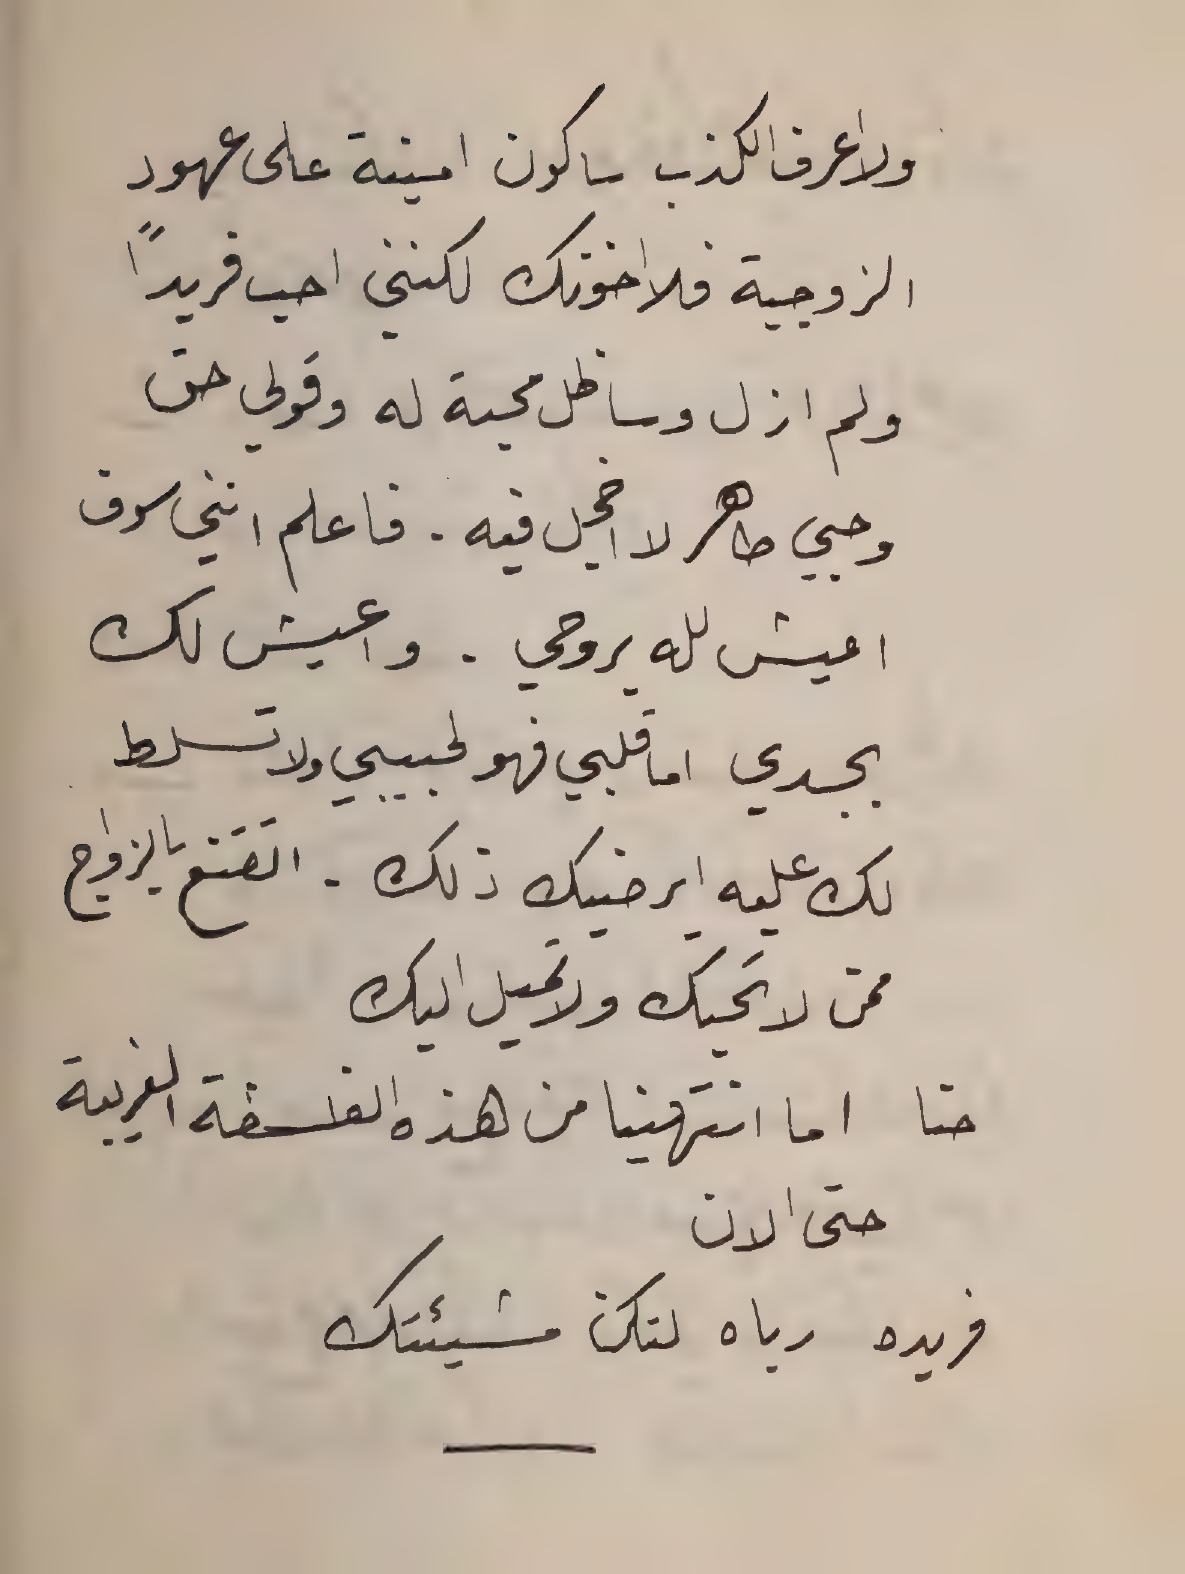 ولا اعرف الكذب ساكون امينة على عهود
الزوجية فلا اخونك لكنني احب فريدًا
ولم ازل وساظل محبة له وقولي حق
وحبي طاهر لا اخجل فيه . فاعلم انني سوف
اعيش لله بروحي . واعيش لك
بجسدي اما قلبي فهو لحبيبي ولا تسلط
لك عليه ايرضيك ذلك . اتقنع بالزواج
ممن لا تحبك ولا تميل اليك
حنا اما انتهينا من هذه الفلسفة الغريبة
حتى الان
فريده رباه لتكن مشيئتك